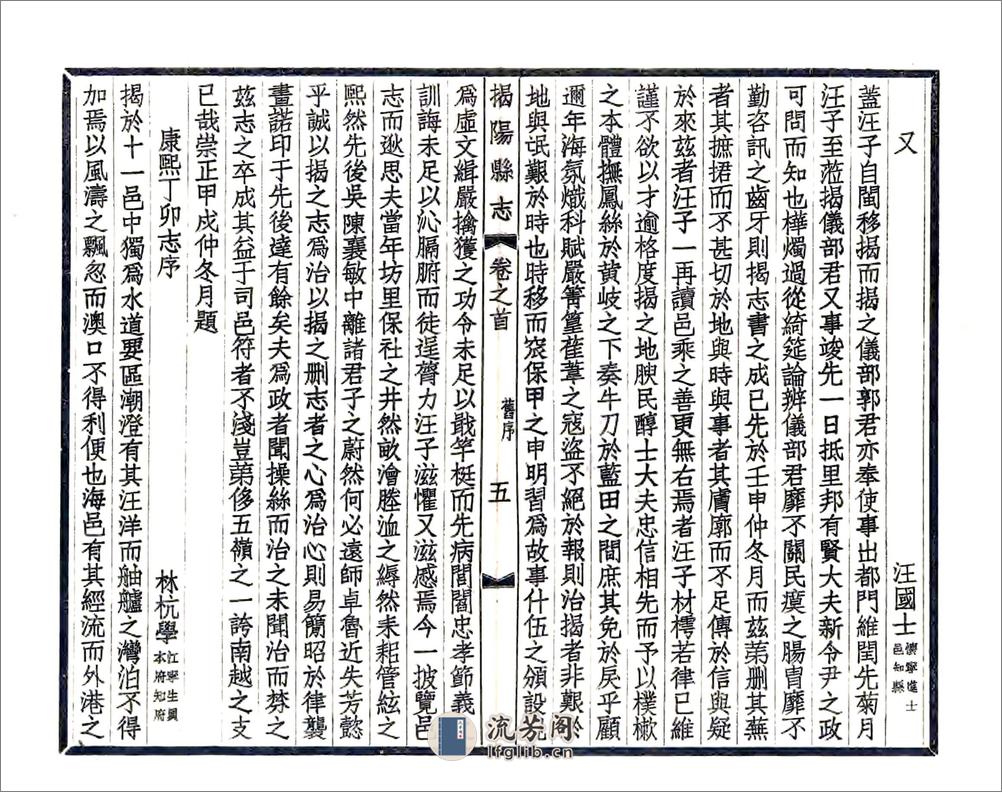 又
汪國士懷寧進士邑知縣
蓋汪子自閩移揭而揭之儀部郭君亦奉使事出都門維閏先菊月
汪子至蒞揭儀部君又事竣先一日抵里邦有賢大夫新令尹之政
可問而知也樺燭過從綺筵論辨儀部君靡不關民瘼之腸胃靡不
勤咨訊之齒牙則揭志書之成已先於壬申仲冬月而茲第刪其蕪
者其摭捃而不甚切於地與時與事者其膚廓而不足傳於信與疑
於來茲者汪子一再讀邑乘之善更無右焉者汪子材樗若律已維
謹不欲以才逾格度揭之地腴民醇士大夫忠信相先而予以樸樕
之本體撫鳳絲於黃岐之下奏牛刀於藍田之間庶其免於戾乎顧
邇年海氛熾科賦嚴箐篁萑葦之寇盜不絕於報則治揭者非艱於
地與氓艱於時也時移而窾保甲之申明習爲故事什伍之頒設
揭陽縣志
卷之首
舊序
五
爲虛文緝嚴擒獲之功令未足以戢竿梃而先病閭閻忠孝節義
訓誨未足以沁膈腑而徒逞膂力汪子滋懼又滋感焉今一披覽邑
志而遡思夫當年坊里保社之井然畝澮塍洫之縟然耒耜管絃之
熙然先後吳陳襄敏中離諸君子之蔚然何必遠師卓魯近失芳懿
乎誠以揭之志爲治以揭之刪志者之心爲治心則易簡昭於律襲
畫諾印于先後達有餘矣夫爲政者聞操絲而治之未聞治而棼之
茲志之卒成其益于司邑符者不淺豈第侈五嶺之一誇南越之支
已哉崇正甲戌仲冬月題
康熙丁卯志序
林杭學江寧生員本府知府
揭於十一邑中獨爲水道要區潮澄有其汪洋而舳艫之灣泊不得
加焉以風濤之飄忽而澳口不得利便也海邑有其經流而外港之
流芳阁
lfglib.cn